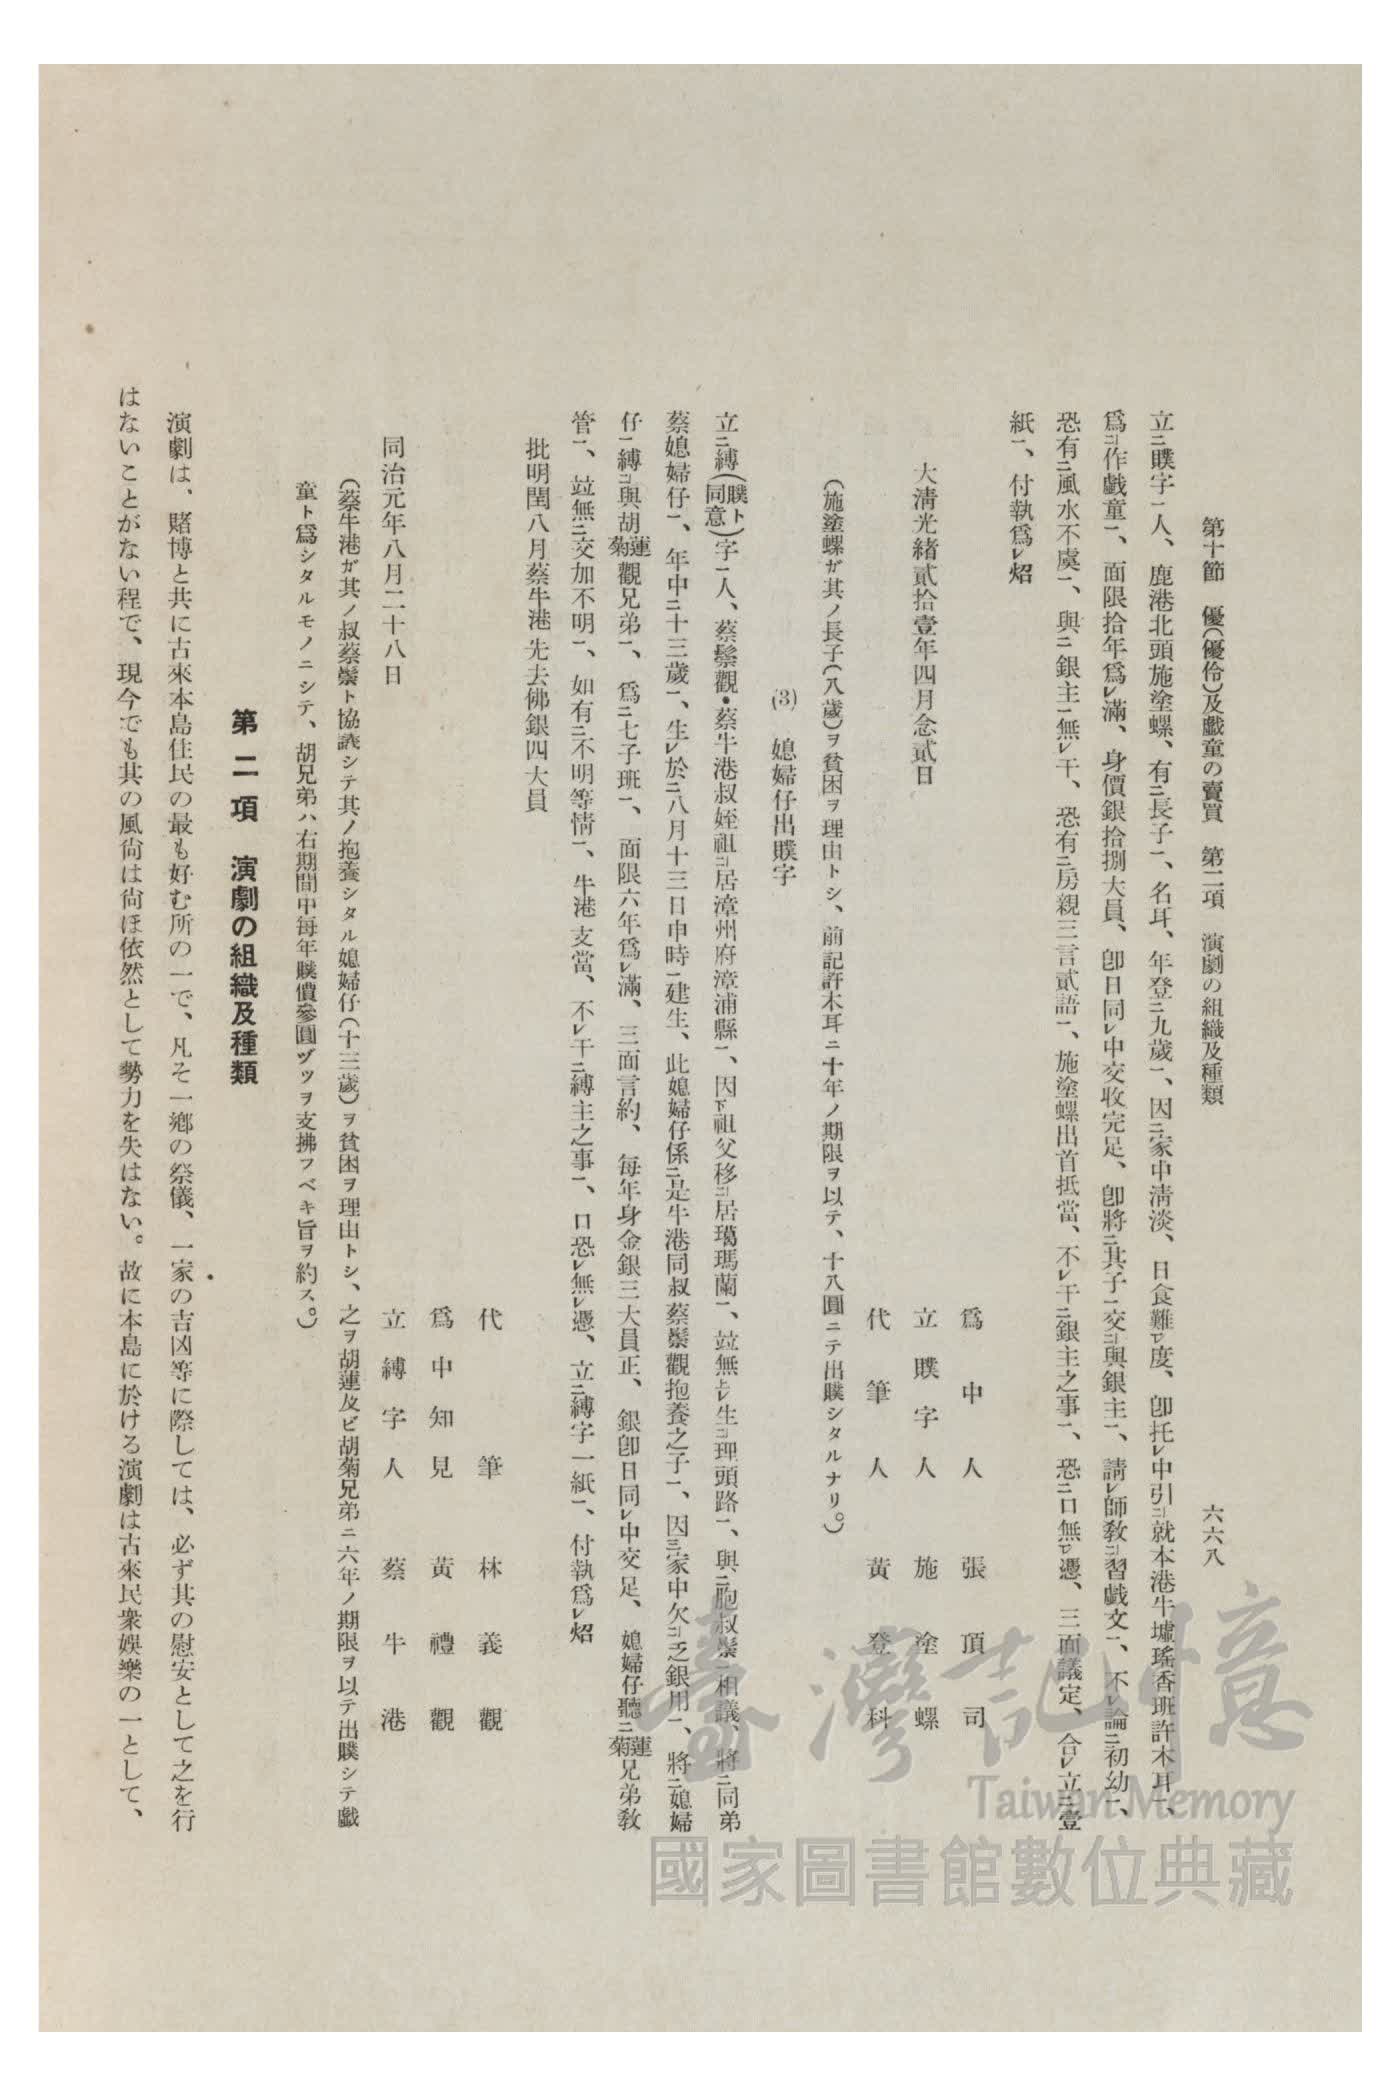 第十節　優(優伶)及戲童の賣買　第二項　演劇の組織及種類　六六八
立ニ贌字一人、鹿港北頭施塗螺、有ニ長子一、名耳、年登ニ九歲一、因ニ家中淸淡、日食難レ度、卽托レ中引ニ就本港牛墟瑤香班許木耳一、
爲ニ作戲童一、面限拾年爲レ滿、身價銀拾捌大員、卽日同レ中交收完足、卽將ニ其子一交ニ與銀主一、請レ師敎ニ習戲文一、不レ論ニ初幼一、
恐有ニ風水不虞一、與ニ銀主一無レ干、恐有ニ房親三言貳語一、施塗螺出首抵當、不レ干ニ銀主之事一、恐ニ口無レ憑、三面議定、合レ立ニ壹
紙一、付執爲レ炤
爲中人　張頂司
大淸光緖貳拾壹年四月念貳日　立贌字人　施塗螺
代筆人　黃登科
(施塗螺ガ其ノ長子(八歲)ヲ貧困ヲ理由トシ、前記許木耳ニ十年ノ期限ヲ以テ、十八圓ニテ出贌シタルナリ。)
(3)　媳婦仔出贌字
立ニ縛(贌ト同意)字一人、蔡鬃觀・蔡牛港叔姪祖ニ居漳州府漳浦縣一、因下祖父移ニ居噶瑪蘭一、竝無上レ生ニ理頭路一、與ニ胞叔鬃一相議、將ニ同弟
蔡媳婦仔一、年中ニ十三歲一、生レ於ニ八月十三日申時一建生、此媳婦仔係ニ是牛港同叔蔡鬃觀抱養之子一、因ニ家中欠ニ乏銀用一、將ニ媳婦
仔一縛ニ與胡蓮菊觀兄弟一、爲ニ七子班一、面限六年爲レ滿、三面言約、每年身金銀三大員正、銀卽日同レ中交足、媳婦仔聽ニ蓮菊兄弟敎
管一、竝無ニ交加不明一、如有ニ不明等情一、牛港支當、不レ干ニ縛主之事一、口恐レ無レ憑、立ニ縛字一紙一、付執爲レ炤
批明閏八月蔡牛港先去佛銀四大員
代筆　林義觀
爲中知見　黃禮觀
同治元年八月二十八日　立縛字人　蔡牛港
(蔡牛港ガ其ノ叔蔡鬃ト協議シテ其ノ抱養シタル媳婦仔(十三歲)ヲ貧困ヲ理由トシ、之ヲ胡蓮及ビ胡菊兄弟ニ六年ノ期限ヲ以テ出贌シテ戲
童ト爲シタルモノニシテ、胡兄弟ハ右期間中每年贌價參圓ヅツヲ支拂フベキ旨ヲ約ス。)
第二項　演劇の組織及種類
演劇は、賭博と共に古來本島住民の最も好む所の一で、凡そ一鄕の祭儀、一家の吉凶等に際しては、必ず其の慰安として之を行
はないことがない程で、現今でも其の風尙は尙ほ依然として勢力を失はない。故に本島に於ける演劇は古來民衆娛樂の一として、
臺灣記憶
Taiwan Memory
國家圖書館數位典藏